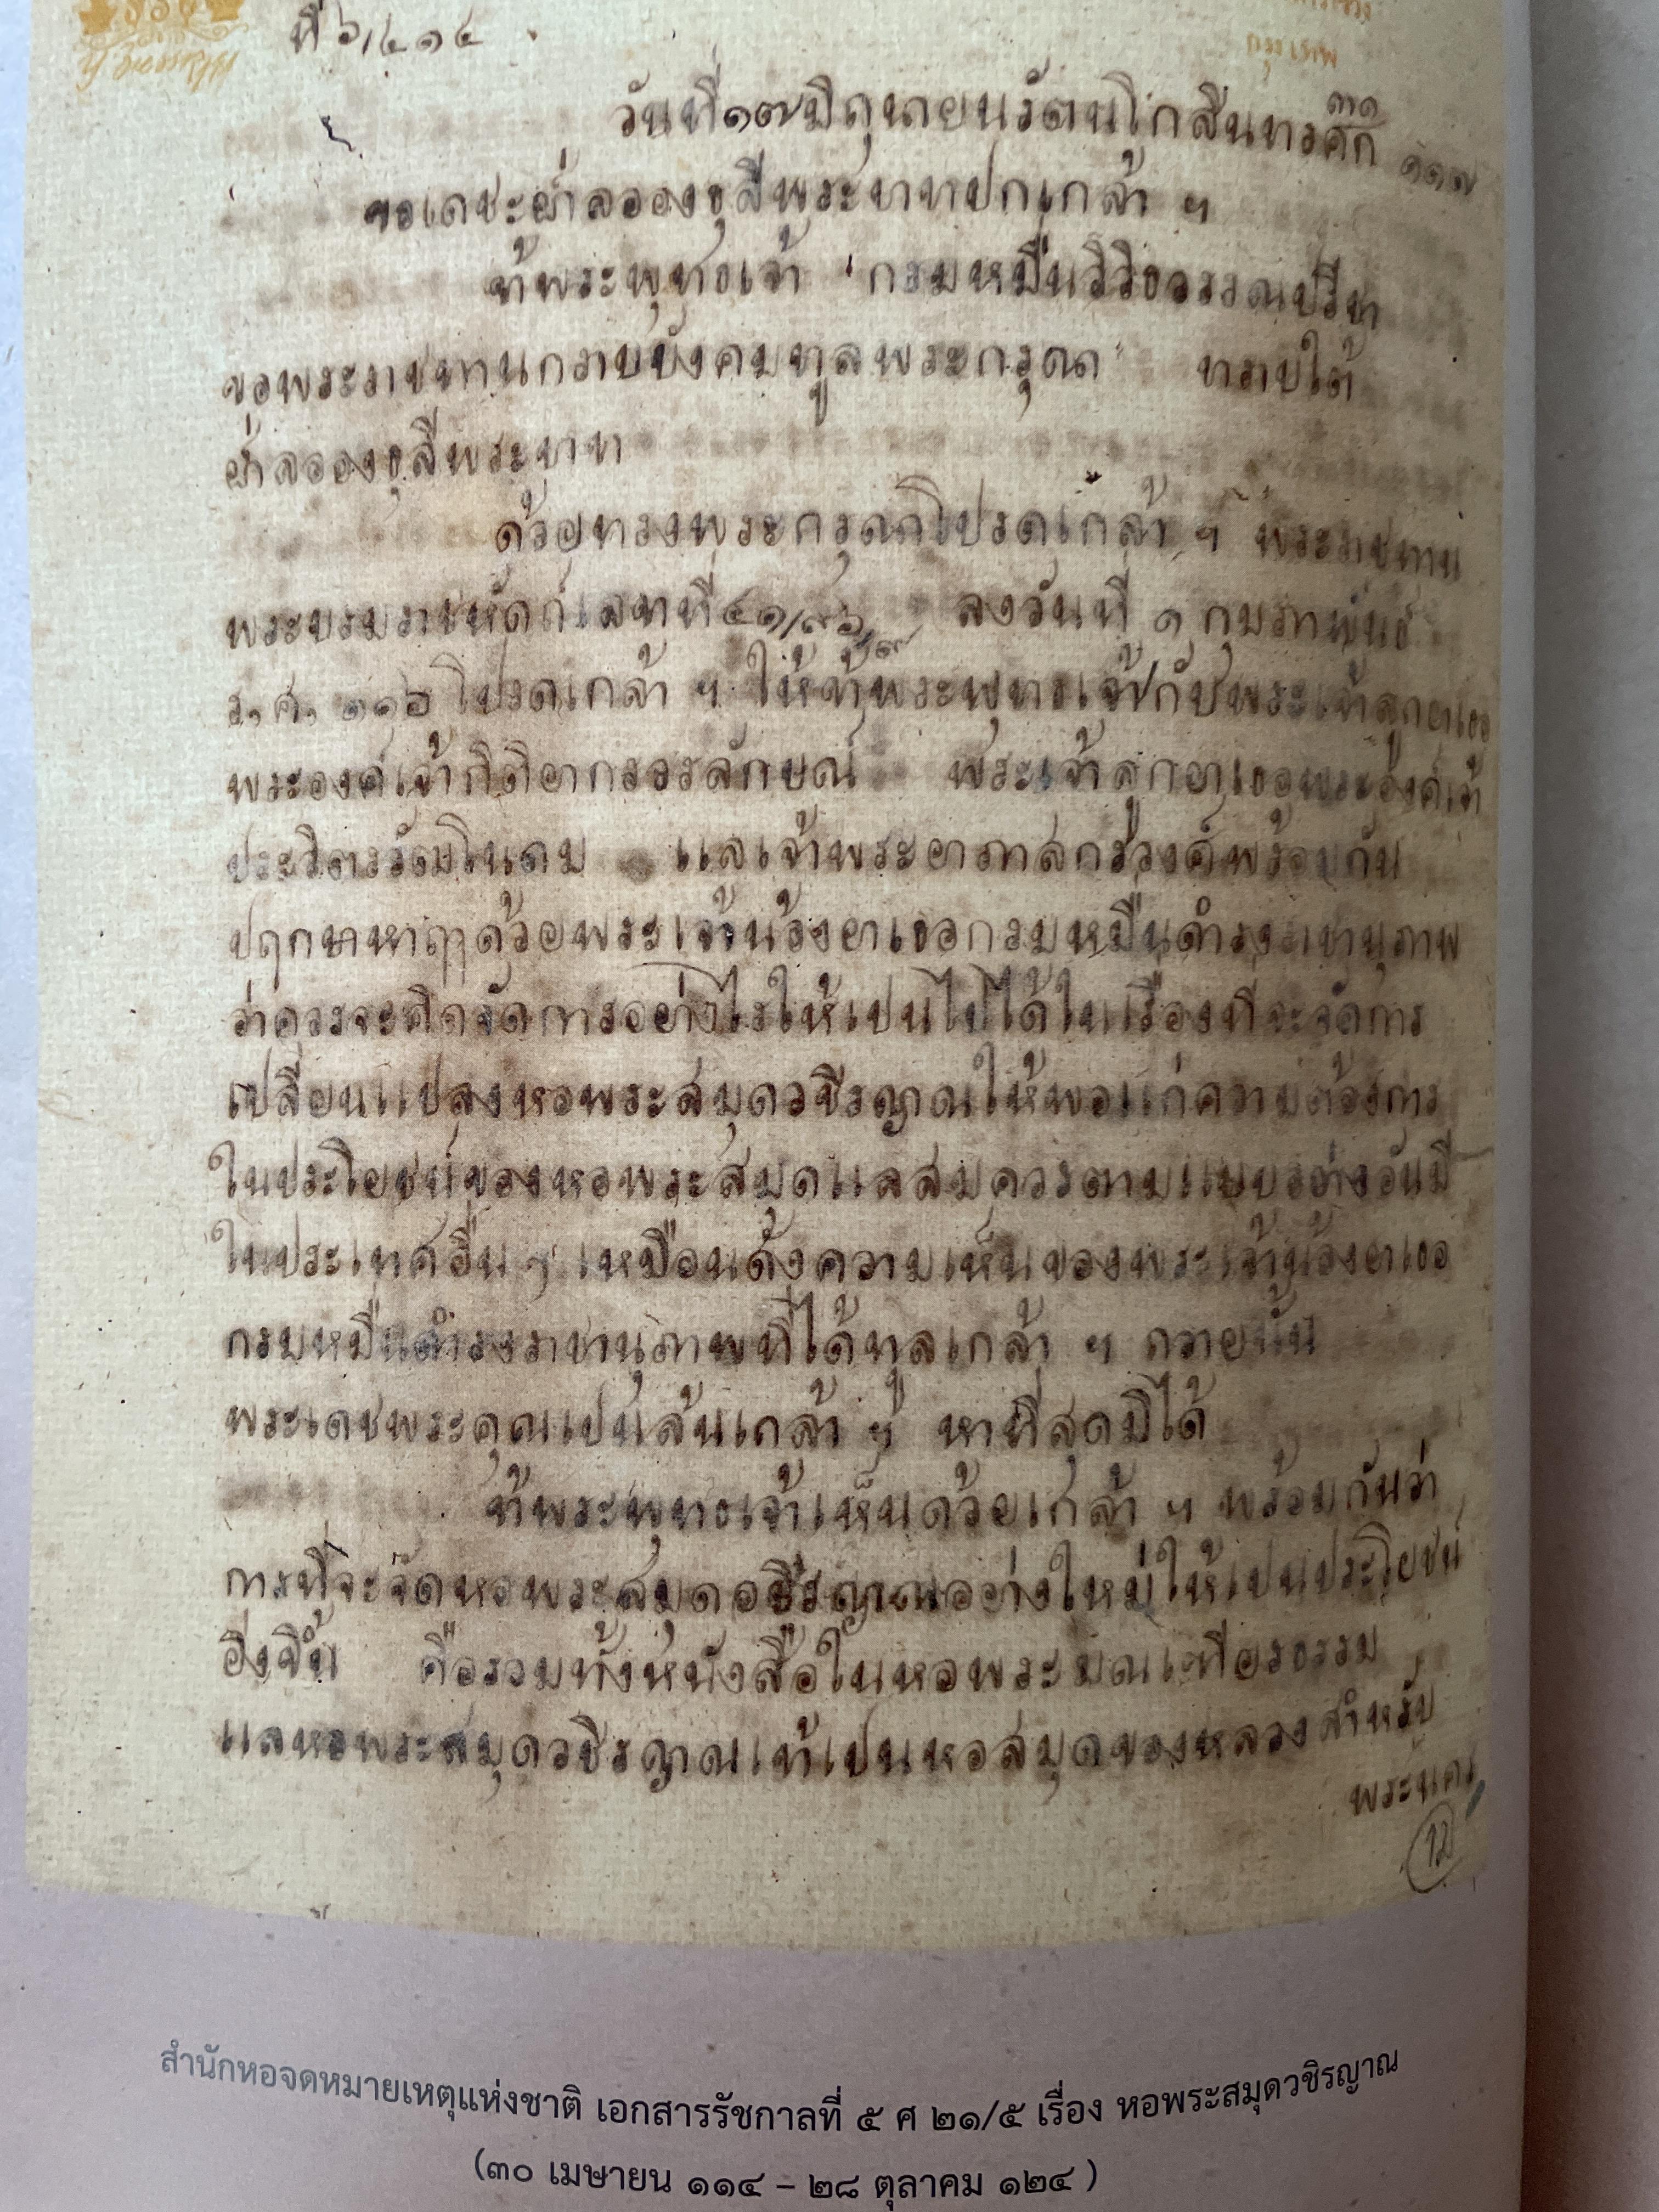 ที่ ๖/๔๑๔
วันที่ ๑๗ มิถุนายน รัตนโกสินทรศ๓๑ก ๑๑๗
ขอเดชะฝ่าลอองธุลีพระบาทปกเกล้า ฯ
ข้าพระพุทธเจ้า กรมหมื่นวิวิธวรรณปรีชา
ขอพระราชทานกราบบังคมทูลพระกรุณา ทราบใต้
ฝ่าลอองธุลีพระบาท
ด้วยทรงพระกรุณาโปรดเกล้า ฯ พระราชทาน
พระบรมราชหัตถ์เลขาที่ ลงวันที่ ๑ กุมภาพันธ์
ร,ศ, ๑๑๖ โปรดเกล้า ฯ ให้ข้าพระพุทธเจ้ากับพระเจ้าลูกยาเธอ
พระองค์เจ้ากิติยากรวรลักษณ์ พระเจ้าลูกยาเธอพระองค์เจ้า
ประวิตรวัฒโนดม แลเจ้าพระยาภาสกรวงศ์พร้อมกัน
ปฤกษาหาฤๅด้วยพระเจ้าน้องยาเธอกรมหมื่นดำรงราชานุภาพ
ว่าควรจะคิดจัดการอย่างไรให้เปนไปได้ในเรื่องที่จะจัดการ
เปลี่ยนแปลงหอพระสมุดวชิรญาณให้พอแก่ความต้องการ
ในประโยชน์ของหอพระสมุดแลสมควรตามแบบอย่างอันมี
ในประเทศอื่น ๆ เหมือนดังความเห็นของพระเจ้าน้องยาเธอ
กรมหมื่นดำรงราชานุภาพที่ได้ทูลเกล้า ฯ ถวายนั้น
พระเดชพระคุณเปนล้นเกล้า ฯ หาที่สุดมิได้
ข้าพระพุทธเจ้าเห็นด้วยเกล้า ฯ พร้อมกันว่า
การที่จะจัดหอพระสมุดวชิรญาณอย่างใหม่ให้เปนประโยชน์
ยิ่งขึ้น คือรวมทั้งหนังสือในหอพระมณเฑียรธรรม
แลหอพระสมุดวชิรญาณเข้าเปนหอสมุดของหลวงสำหรับ
พระนคร
สำนักหอจดหมายเหตุแห่งชาติ เอกสารรัชกาลที่ ๕ ศ ๒๑/๕ เรื่อง หอพระสมุดวชิรญาณ
(๓๐ เมษายน ๑๑๔ – ๒๘ ตุลาคม ๑๒๔ )